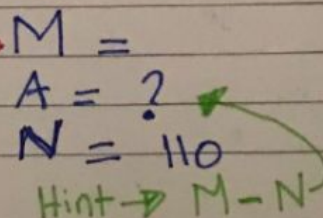 M =
A = ?
N = 110
Hint → M - N